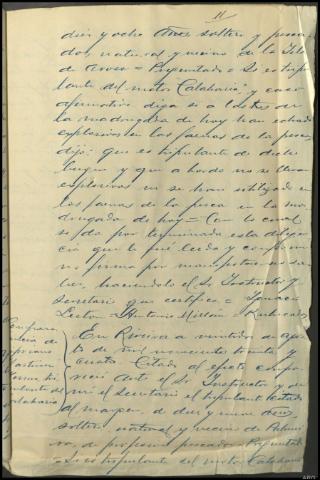 11
diez y ocho años soltero y pesca-
dor natural y vecino de la Isla
de Arosa = Preguntado = Si es tripu
lante del motor "Calaharia" y caso
afirmativo diga si a las tres de
la madrugada de hoy han echado
explosivos en las faenas de la pesca,
dijo: que es tripulante de dicho
buque y que a bordo no se llevan
explosivos ni se han utilizado en
las faenas de la pesca en la ma-
drugada de hoy = Con lo cual
se da por terminada esta diligen
cia que le fué leida y conforme
no firma por manifestar no sa-
ber, haciendolo el Sr Instructor y
secretario que certifico = Ignacio
= Antonio Millán = Rubricado
En Riveira a veintidos de agos
to de mil novecientos treinta y
cuatro. Citado al efecto compa-
reció ante el Sr Instructor y de
mi el secretario el tripulante citado
al margen, de diez y nueve años
soltero, natural y vecino de Palmei
ra, de profesion pescador = Preguntado
= Si es tripulante del motor Calaharia
Comparec
encia de
tri
pulante del
Calaharia